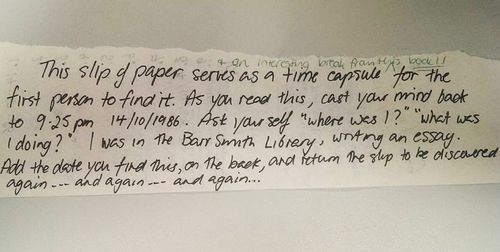 + an interesting break from this book!!
This slip of paper serves as a time capsule for the
first person to find it. As you read this, cast your mind back
to 9.25 pm 14/10/1986. Ask yourself "where was I?" "what was
I doing?" I was in the Barr Smith Library, writing an essay.
Add the date you find this, on the back, and return the slip to be discovered
again --- and again --- and again...